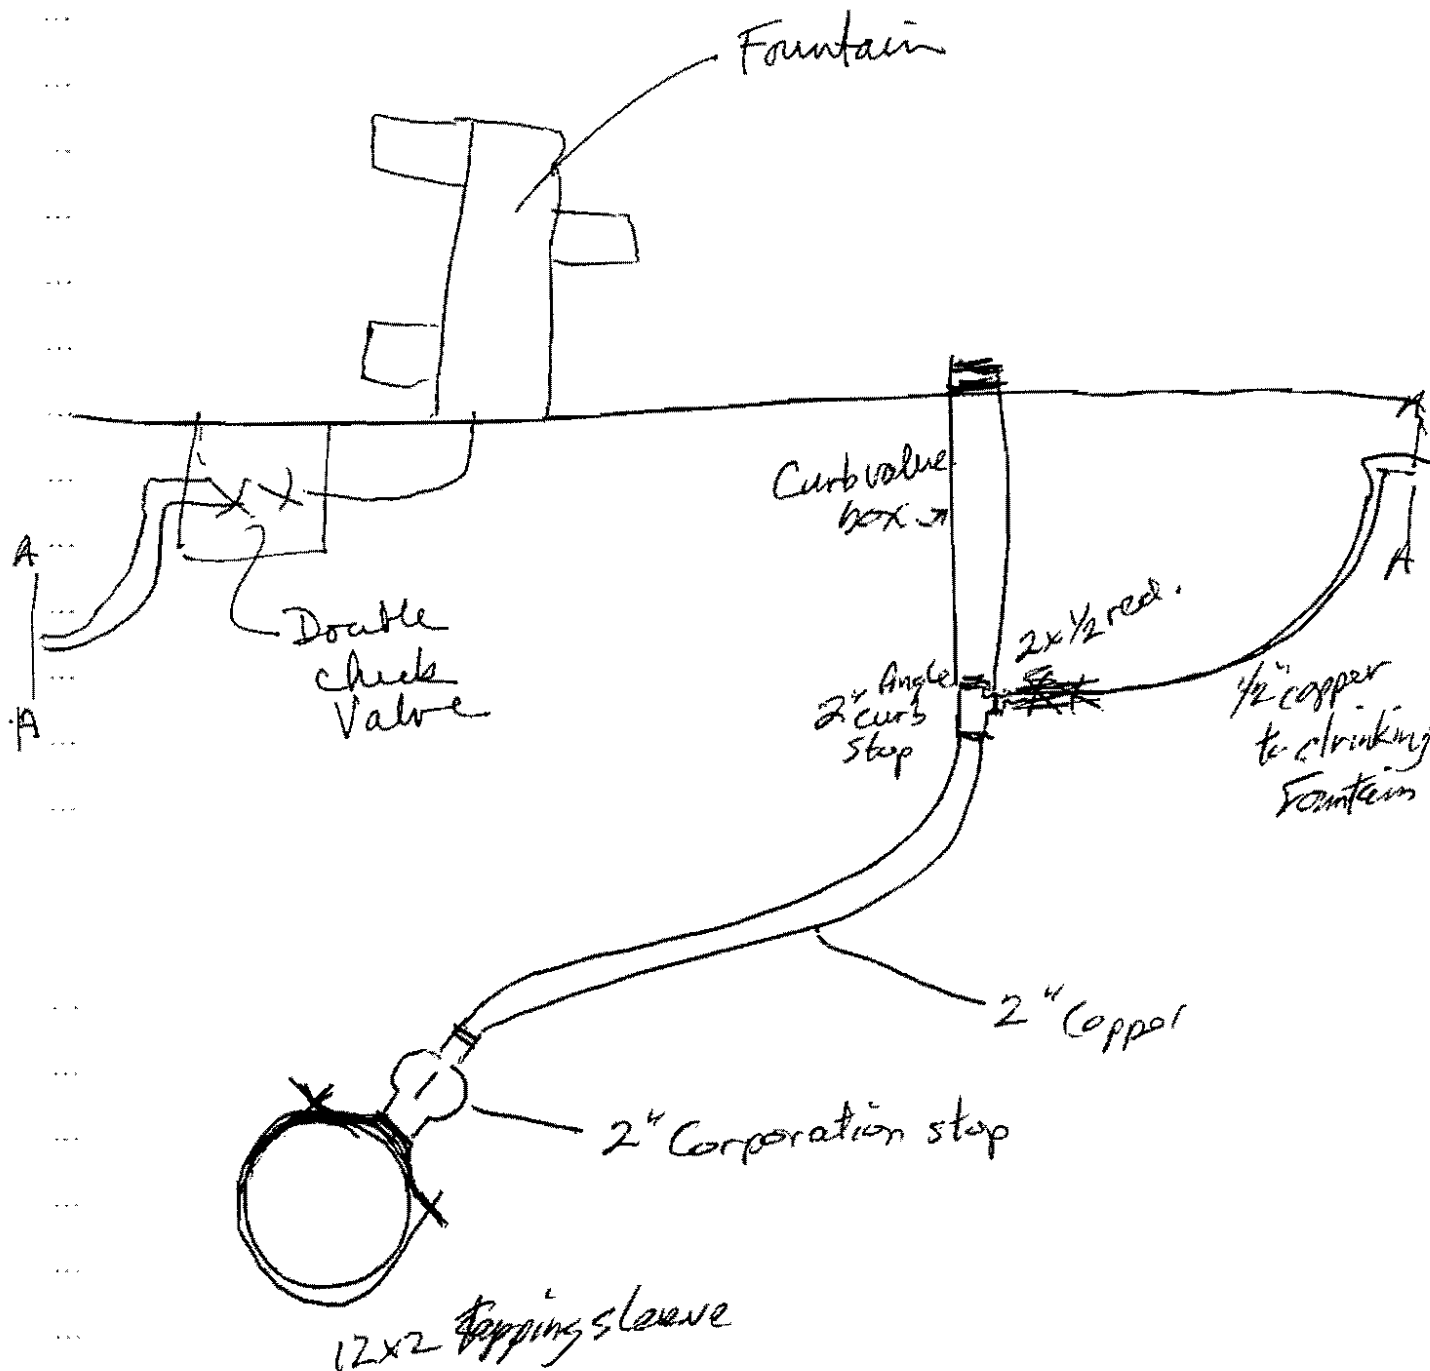 Fountain
Curb valve
box
A
A
A
A
Double
check
Valve
2x1/2 red.
2" Angle
curb
stop
1/2" copper
to drinking
Fountain
2" Copper
2" Corporation stop
12x2 tapping sleeve